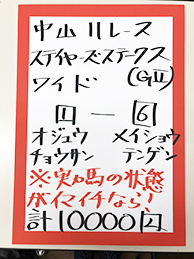 中山11レース
ステイヤーズステークス
ワイド (GII)
1 － 6
オジュウ メイショウ
チョウサン テンゲン
※実馬の状態
がイマイチなら!
計10000円